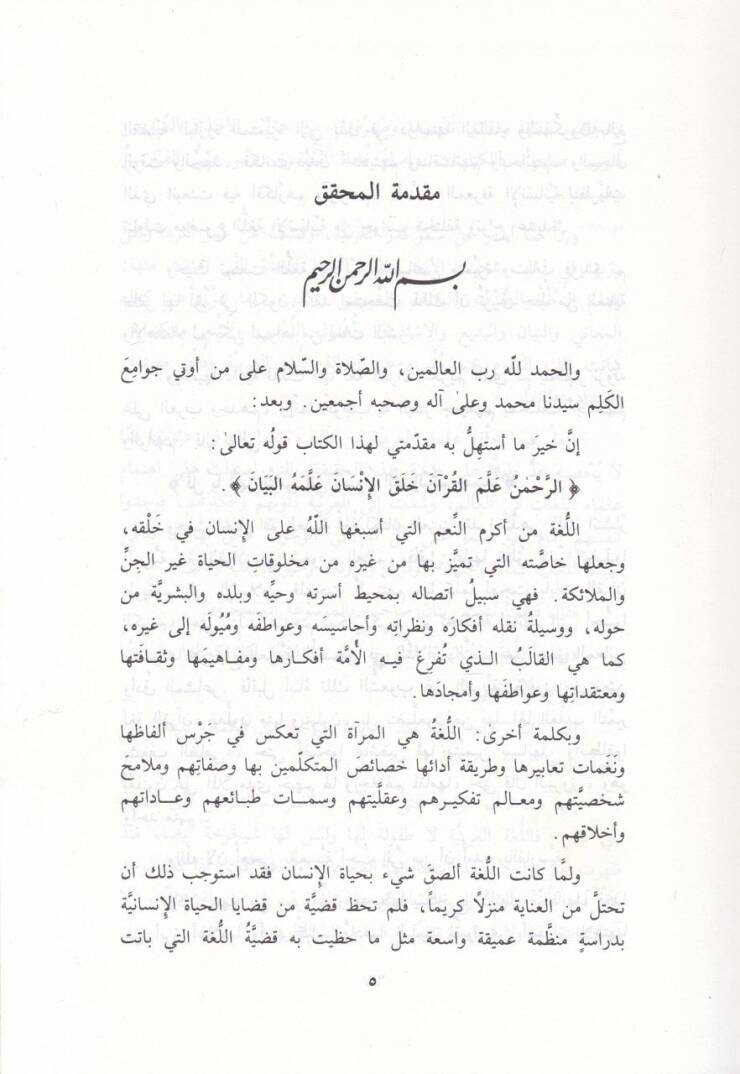 مقدمة المحقق
بسم الله الرحمن الرحيم
والحمد للّه رب العالمين، والصّلاة والسّلام على من أوتي جوامِعَ
الكَلِم سيدنا محمد وعلىٰ آله وصحبه أجمعين. وبعد:
إنَّ خير ما أستهِلُّ به مقدّمتي لهذا الكتاب قولُه تعالىٰ:
﴿ الرَّحْمٰنُ عَلَّمَ القُرْآنَ خَلَقَ الإِنْسَانَ عَلَّمَهُ البَيَانَ ﴾.
اللُّغة من أكرم النِّعم التي أسبغها اللّهُ على الإِنسان في خَلْقه،
وجعلها خاصَّته التي تميَّز بها من غيره من مخلوقاتِ الحياة غير الجِنِّ
والملائكة. فهي سبيلُ اتصاله بمحيط أسرته وحيِّه وبلده والبشريَّة من
حوله، ووسيلةُ نقله أفكارَه ونظراتِه وأحاسيسَه وعواطفَه ومُيُولَه إلى غيره،
كما هي القالَبُ الـذي تُفرِغَ فيـه الأُمَّة أفكـارهـا ومفـاهيمَها وثقـافتَها
ومعتقداتِها وعواطفَها وأمجادَها.
وبكلمة أخرى: اللُّغةُ هي المرآة التي تعكس في جَرْس ألفاظها
ونَغَمات تعابيرها وطريقة أدائها خصائصَ المتكلّمين بها وصفاتِهم وملامحَ
شخصيَّتهم ومعـالم تفكيـرهم وعقليَّتهم وسمـات طبـائعهم وعـاداتهم
وأخلاقهم.
ولمَّا كانت اللُّغة ألصقَ شيء بحياة الإِنسان فقد استوجب ذلك أن
تحتلَّ من العناية منزلاً كريماً، فلم تحظ قضيَّة من قضايا الحياة الإِنسانيَّة
بدراسةٍ منظَّمة عميقة واسعة مثل ما حظيت به قضيَّةُ اللُّغة التي باتت
٥